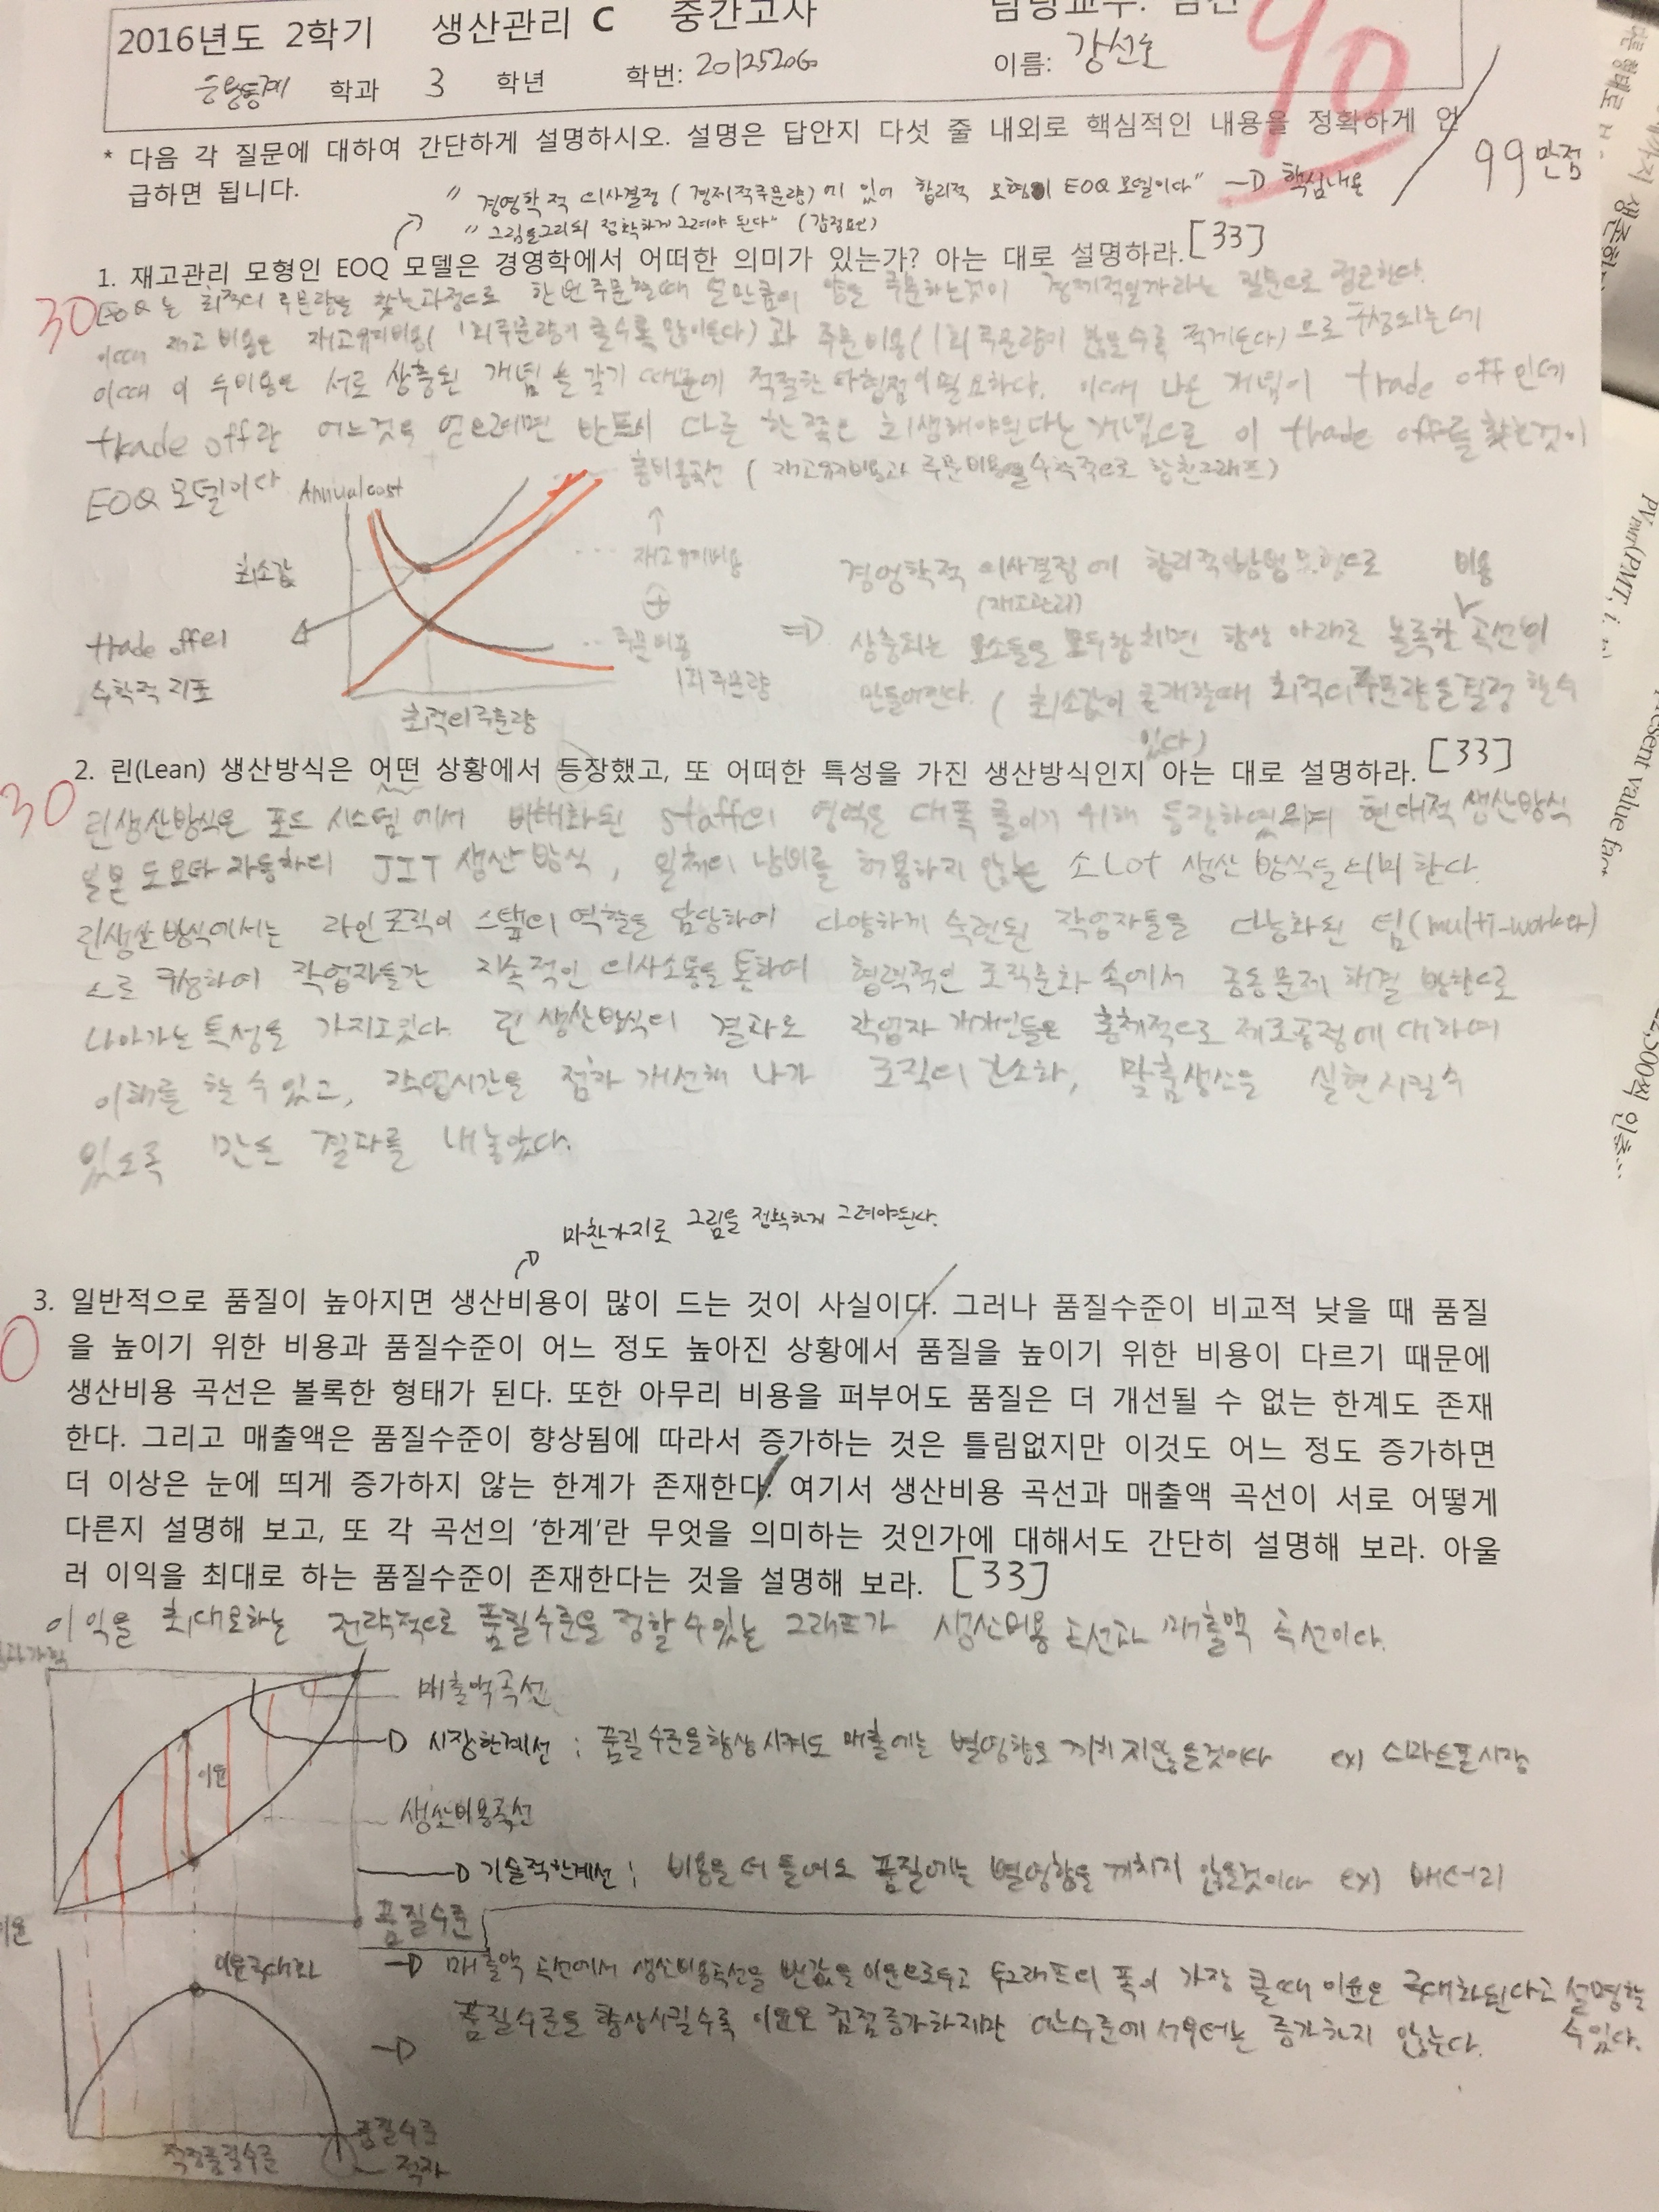 2016년도 2학기 생산관리 C 중간고사 담당교수:
응용통계 학과 3 학년 학번: 20125206 이름: 강선호
90
99만점
* 다음 각 질문에 대하여 간단하게 설명하시오. 설명은 답안지 다섯 줄 내외로 핵심적인 내용을 정확하게 언
급하면 됩니다.
" 경영학적 의사결정 (경제적주문량)에 있어 합리적 모형이 EOQ 모델이다" → 핵심내용
" 그림을그리되 정확하게 그려야 된다" (감점요인)
1. 재고관리 모형인 EOQ 모델은 경영학에서 어떠한 의미가 있는가? 아는 대로 설명하라. [33]
30
EOQ는 최적의 주문량을 찾는과정으로 한번 주문할때 얼만큼의 양을 주문하는것이 경제적일까라는 질문으로 접근한다.
이때 재고 비용은 재고유지비용( 1회주문량이 클수록 많이든다) 과 주문비용(1회 주문량이 많을수록 적게든다) 으로 구성되는데
이때 이 두비용은 서로 상충된 개념을 갖기 때문에 적절한 타협점이 필요하다. 이때 나온 개념이 trade off 인데
trade off란 어느것을 얻으려면 반드시 다른 한쪽은 희생해야된다는 개념으로 이 trade off를 찾는것이
EOQ 모델이다
Annual cost
총비용곡선 ( 재고유지비용과 주문비용을 수학적으로 합친그래프)
재고유지비용
+
주문비용
1회 주문량
최소값
trade off의
수학적 지표
최적의주문량
⇒ 경영학적 의사결정에 합리적인방법 모형으로
(재고관리)
상충되는 요소들을 모두합치면 항상 아래로 볼록한 비용 곡선이
만들어진다. ( 최소값이 존재할때 최적의주문량을 결정 할수
있다)
2. 린(Lean) 생산방식은 어떤 상황에서 등장했고, 또 어떠한 특성을 가진 생산방식인지 아는 대로 설명하라. [33]
30
린생산방식은 포드 시스템에서 비대화된 staff의 영역을 대폭 줄이기 위해 등장하였으며 현대적 생산방식
일본 도요타 자동차의 JIT 생산 방식, 일체의 낭비를 허용하지 않는 소Lot 생산 방식을 의미한다.
린생산 방식에서는 라인조직이 스탭의 역할을 담당하여 다양하게 숙련된 작업자들을 다능화된 팀(multi-worker)
으로 구성하여 작업자들간 지속적인 의사소통을 통하여 협력적인 조직문화 속에서 공동문제 해결 방향으로
나아가는 특성을 가지고있다. 린 생산방식의 결과로 작업자 개개인들은 총체적으로 제조공정에 대하여
이해를 할 수 있고, 작업시간을 점차 개선해 나가 조직의 간소화, 맞춤생산을 실현시킬수
있도록 만든 결과를 내놓았다.
마찬가지로 그림을 정확하게 그려야된다.
3. 일반적으로 품질이 높아지면 생산비용이 많이 드는 것이 사실이다. 그러나 품질수준이 비교적 낮을 때 품질
을 높이기 위한 비용과 품질수준이 어느 정도 높아진 상황에서 품질을 높이기 위한 비용이 다르기 때문에
생산비용 곡선은 볼록한 형태가 된다. 또한 아무리 비용을 퍼부어도 품질은 더 개선될 수 없는 한계도 존재
한다. 그리고 매출액은 품질수준이 향상됨에 따라서 증가하는 것은 틀림없지만 이것도 어느 정도 증가하면
더 이상은 눈에 띄게 증가하지 않는 한계가 존재한다. 여기서 생산비용 곡선과 매출액 곡선이 서로 어떻게
다른지 설명해 보고, 또 각 곡선의 '한계'란 무엇을 의미하는 것인가에 대해서도 간단히 설명해 보라. 아울
러 이익을 최대로 하는 품질수준이 존재한다는 것을 설명해 보라. [33]
이익을 최대로하는 전략적으로 품질수준을 정할 수 있는 그래프가 생산비용 곡선과 매출액 곡선이다.
매출액곡선
→ 시장한계선 : 품질 수준을향상시켜도 매출에는 별영향을 끼치지않을것이다 ex) 스마트폰시장
이윤
생산비용곡선
→ 기술적한계선 : 비용을 더 들여도 품질에는 별영향을 끼치지 않을것이다 ex) 배터리
품질수준
이윤
이윤극대화
→ 매출액 곡선에서 생산비용곡선을 뺀값을 이윤으로두고 두그래프의 폭이 가장 클때 이윤은 극대화된다고 설명할
수있다.
→ 품질수준을 향상시킬수록 이윤은 점점증가하지만 어느수준에서부터는 증가하지 않는다.
적정품질수준
품질수준
적자